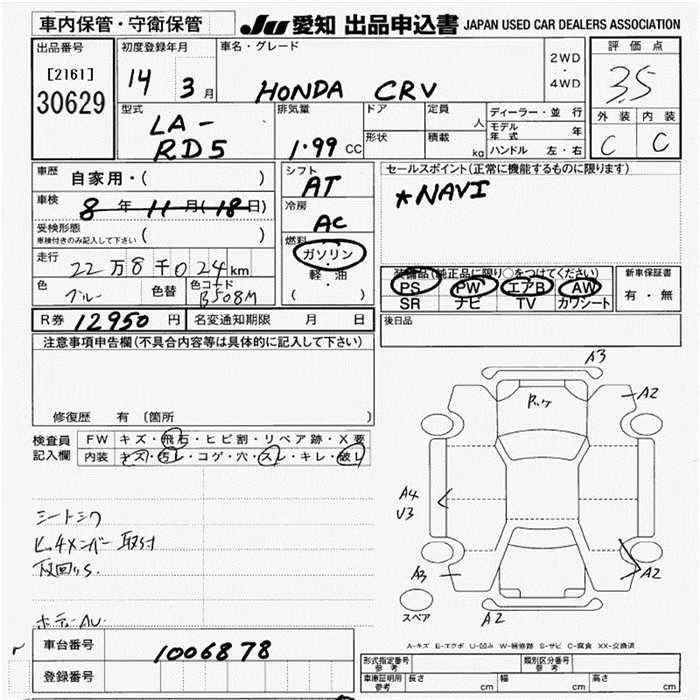 車内保管・守衛保管
JU 愛知 出品申込書 JAPAN USED CAR DEALERS ASSOCIATION
出品番号
[2161]
30629
初度登録年月
14 3 月
車名・グレード
HONDA CRV
2WD
・
4WD
評価点
3.5
外装 内装
C C
型式
LA-
RD5
排気量
1.99 CC
ドア
形状
定員
人
積載
kg
ディーラー・並行
モデル年式 年
ハンドル 左・右
車歴
自家用・( )
車検
8 年 11 月(18日)
受検形態
車検付きのみ記入して下さい ( )
走行
22万8千024km
色
ブルー
色替
色コード
B508M
シフト
AT
冷房
AC
燃料
ガソリン
・
軽・油
( )
セールスポイント(正常に機能するものに限ります)
*NAVI
装備品(純正品に限り○をつけてください)
PS PW エアB AW
SR ナビ TV カワシート
新車保証書
有・無
R券 12950 円 名変通知期限 月 日
後日品
注意事項申告欄(不具合内容等は具体的に記入して下さい)
修復歴 有 〔箇所
検査員
記入欄
FW キズ・飛石・ヒビ割・リペア跡・X要
内装 キズ・汚レ・コゲ・穴・スレ・キレ・破レ
シートシワ
ヒッチメンバー取付
A3
A2
A4
U3
A3
A2
スペア
A2
A-キズ E-エクボ U-凹み W-補修跡 S-サビ C-腐食 XX-交換済
車台番号
1006878
登録番号
形式指定番号
参考
類別区分番号
参考
車庫証明用
参考
長さ cm 幅 cm 高さ cm